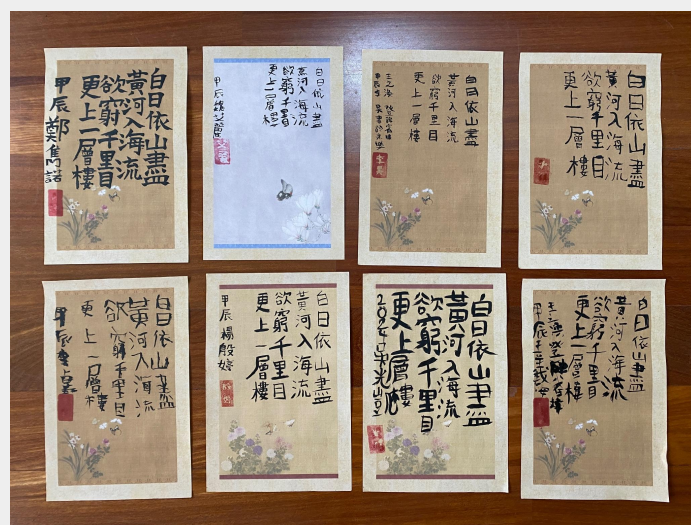 白日依山盡
黃河入海流
欲窮千里目
更上一層樓
甲辰鄭雋諾
白日依山盡
黃河入海流
欲窮千里目
更上一層樓
甲辰
白日依山盡
黃河入海流
欲窮千里目
更上一層樓
王之渙
白日依山盡
黃河入海流
欲窮千里目
更上一層樓
白日依山盡
黃河入海流
欲窮千里目
更上一層樓
甲辰
白日依山盡
黃河入海流
欲窮千里目
更上一層樓
甲辰楊殷婷
白日依山盡
黃河入海流
欲窮千里目
更上層樓
白日依山盡
黃河入海流
欲窮千里目
更上一層樓
王之渙登
甲辰